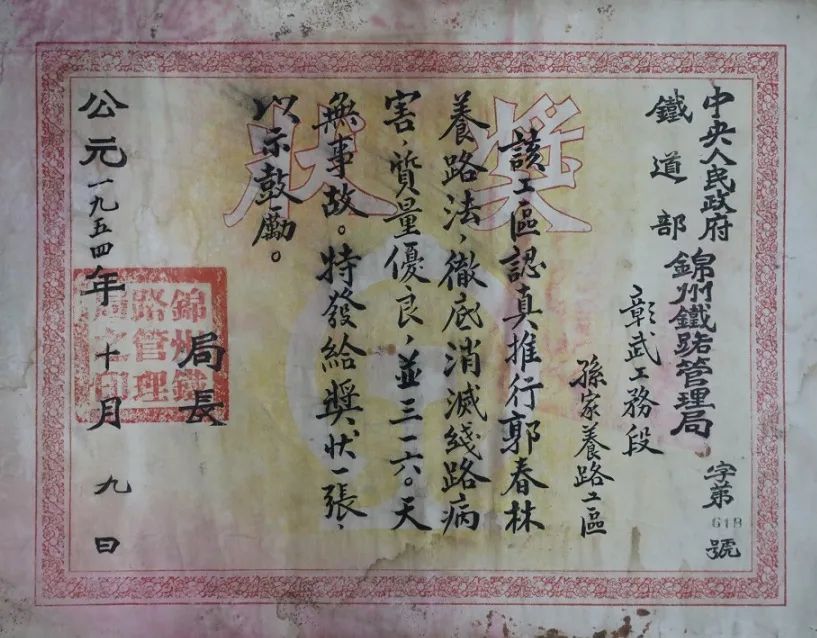 獎狀
中央人民政府
鐵道部
錦州鐵路管理局
字第618號
彰武工務段
孫家養路工區
該工區認真推行郭春林
養路法，徹底消滅綫路病
害，質量優良，並三一六〇天
無事故。特發給獎狀一張，
以示鼓勵。
局長
公元一九五四年十月九日
錦州鐵
路管理
局之印